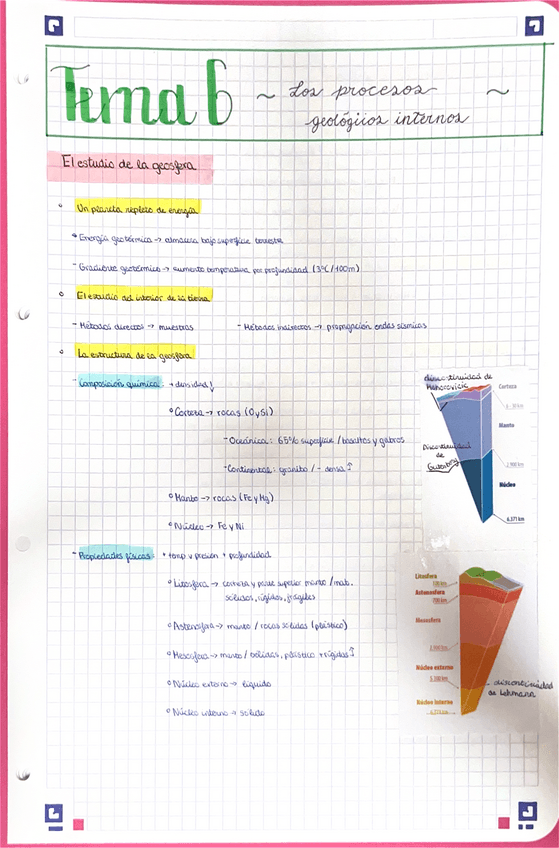 Tema 6 ~ Los procesos ~
geológiios internos
El estudio de la geosfera
° Un planeta repleto de energía
Energía geotérmica → almacena bajo superficie terrestre
- Gradiente geotérmico → aumento temperatura por profundidad (3ºC/100m)
° El estudio del interior de la tierra
- Métodos directos → muestras - Métodos indirectos → propagación ondas sísmicas
° La estructura de la geosfera
- Composición química: + densidad ↓
° Corteza → rocas (O y Si)
- Oceánica: 65% superficie / basaltos y gabros
- Continental: granito / - densa ↑
° Manto → rocas (Fe y Mg)
° Núcleo → Fe y Ni
discontinuidad de
Mohorovicic
Corteza
Manto
Discontinuidad
de
Gutenberg
2.900 km
Núcleo
6.371 km
- Propiedades físicas: + temp y presión + profundidad
° Litosfera → corteza y parte superior manto / mat.
sólidos, rígidos, frágiles
° Astenosfera → manto / rocas sólidas (plástico)
° Mesosfera → manto / sólidas, plástica + rígidas ↑
° Núcleo externo → líquido
° Núcleo interno → sólido
Litosfera
Astenosfera
Mesosfera
2.900 km
Núcleo externo
Núcleo interno
discontinuidad
de Lehmann